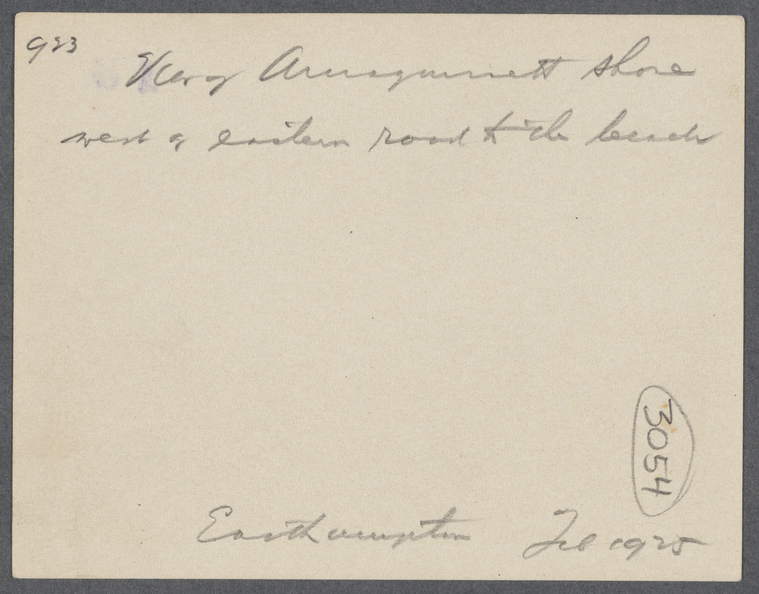 923
View of Amagansett shore
west of eastern road to the beach
3054
Easthampton Feb 1925